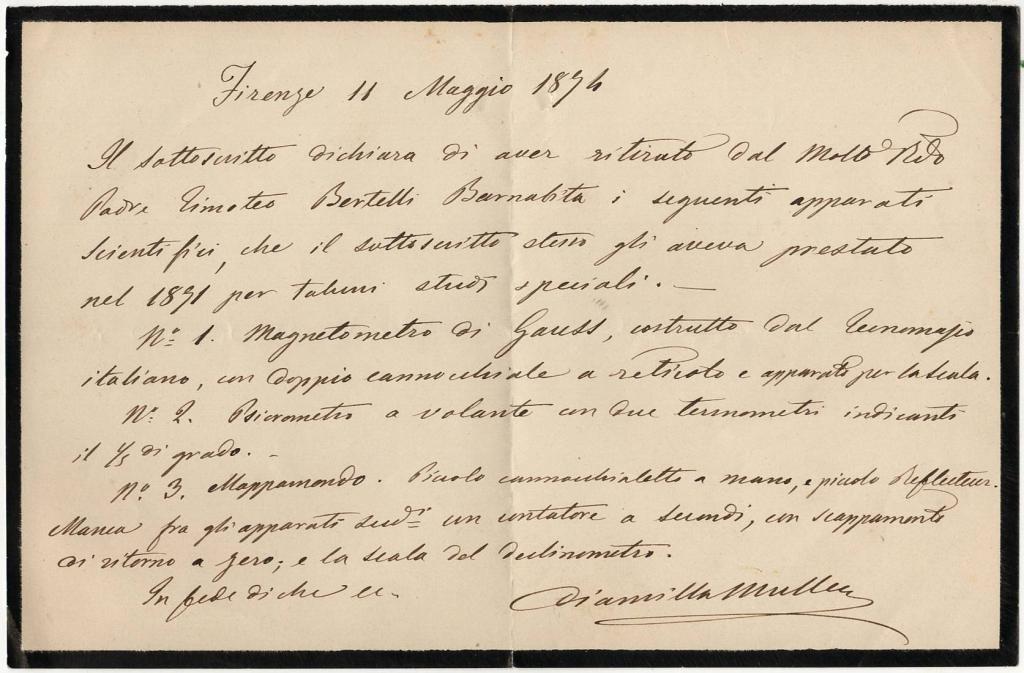 Firenze 11 Maggio 1874
Il sottoscritto dichiara di aver ritirato dal Molto Rdo
Padre Timoteo Bertelli Barnabita i seguenti apparati
scientifici, che il sottoscritto stesso gli aveva prestato
nel 1871 per taluni studi speciali. —
No. 1. Magnetometro di Gauss, costrutto dal Tecnomasio
italiano, con doppio cannocchiale a reticolo e apparato per la scala.
No. 2. Psicrometro a volante con due termometri indicanti
il 1/5 di grado. —
No. 3. Mappamondo. Piccolo cannocchialetto a mano, e piccolo Reflecteur.
Manca fra gli apparati sudi un contatore a secondi, con scappamento
di ritorno a zero; e la scala del declinometro.
In fede di che ec.
Diamilla Muller